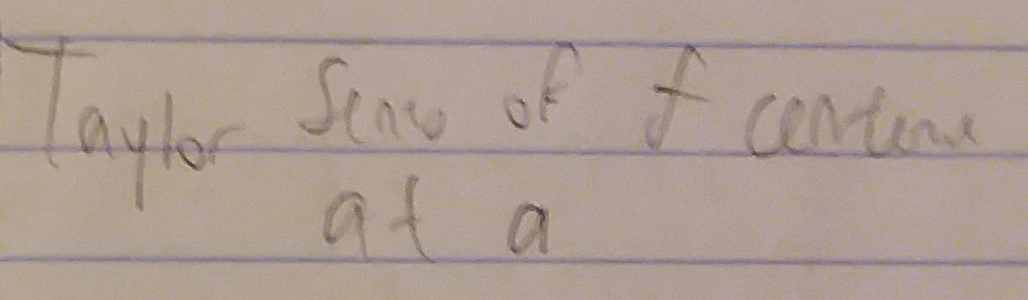 Taylor Series of f centere
at a